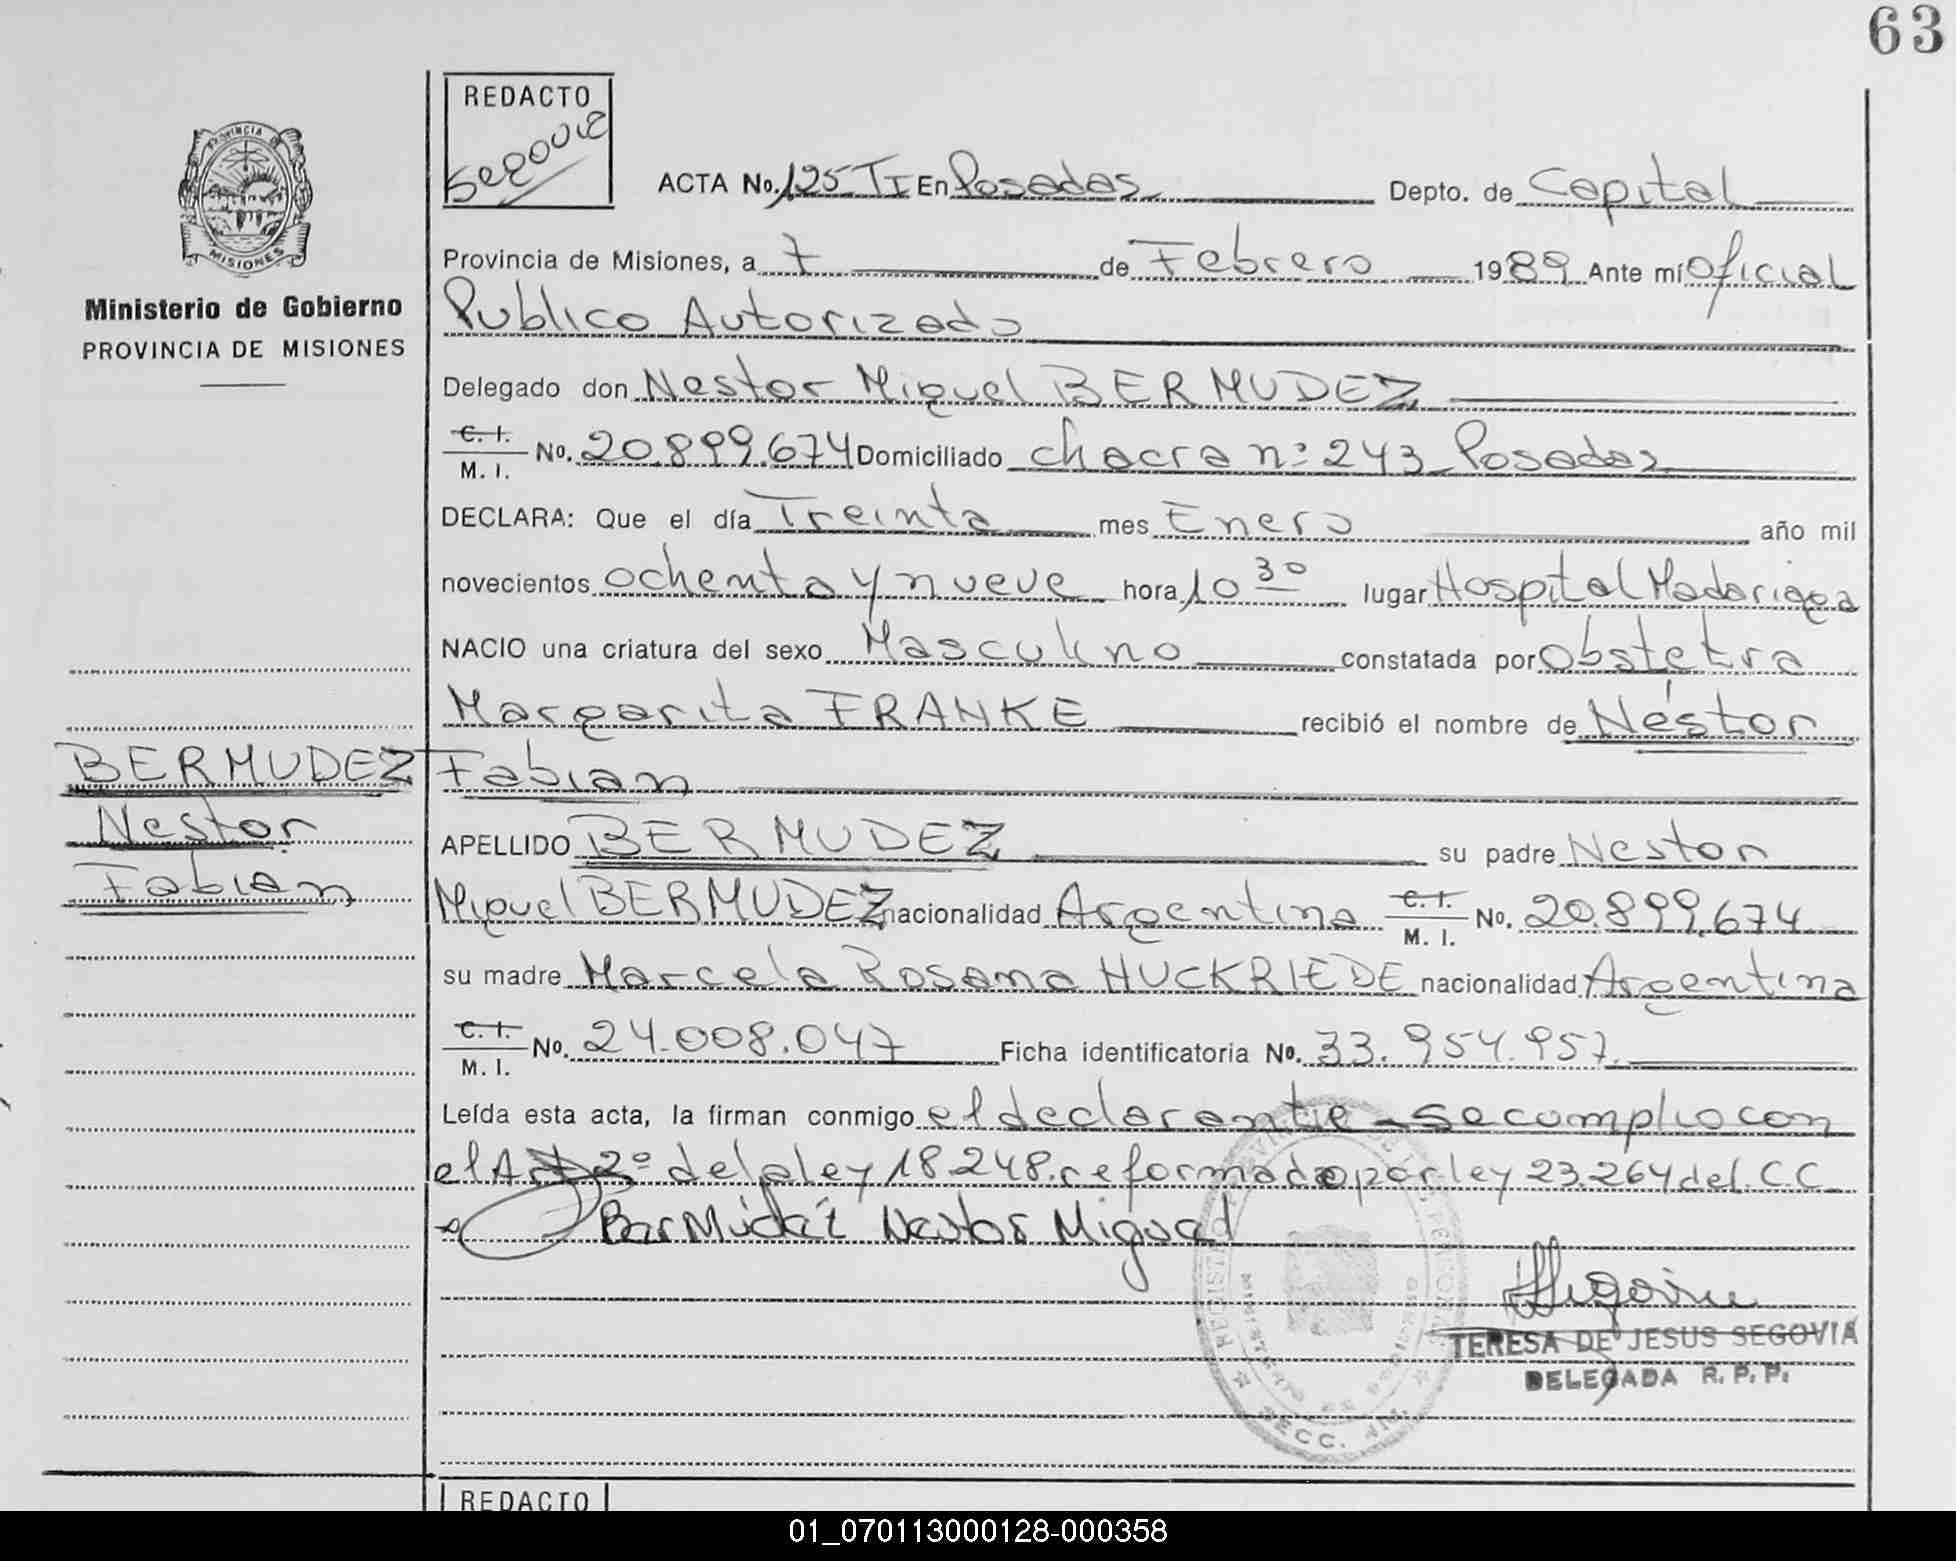 63
REDACTO
Segovia
PROVINCIA
MISIONES
Ministerio de Gobierno
PROVINCIA DE MISIONES
ACTA No. 125 TI En Posadas Depto. de Capital
Provincia de Misiones, a 7 de Febrero 1989 Ante mí Oficial
Publico Autorizado
Delegado don Nestor Miguel BERMUDEZ
C. I. M. I. No. 20.899.674 Domiciliado chacra nº 243 Posadas
DECLARA: Que el día Treinta mes Enero año mil
novecientos ochenta y nueve hora 10 30 lugar Hospital Madariaga
NACIO una criatura del sexo Masculino constatada por Obstetra
Margarita FRANKE recibió el nombre de Néstor
Fabian
BERMUDEZ
Nestor
Fabian
APELLIDO BERMUDEZ su padre Nestor
Miguel BERMUDEZ nacionalidad Argentina C. I. M. I. No. 20.899.674
su madre Marcela Rosana HUCKRIEDE nacionalidad Argentina
C. I. M. I. No. 24.008.047 Ficha identificatoria No. 33.954.957.
Leída esta acta, la firman conmigo el declarante se cumplio con
el Art 2º de la ley 18.248. reformado por ley 23.264 del. C.C.
Bermúdez Nestor Miguel
TERESA DE JESUS SEGOVIA
DELEGADA R. P. P.
REDACTO
01_070113000128-000358